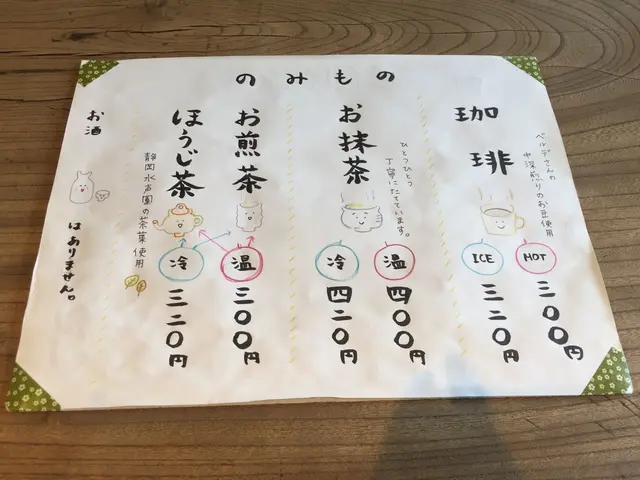 のみもの
珈琲
ベルデさんの
中深煎りのお豆使用
HOT
三〇〇円
ICE
三二〇円
お抹茶
ひとつひとつ
丁寧にたてています。
温
四〇〇円
冷
四二〇円
お煎茶
ほうじ茶
静岡水声園の茶葉使用
温
三〇〇円
冷
三二〇円
お酒
はありません。